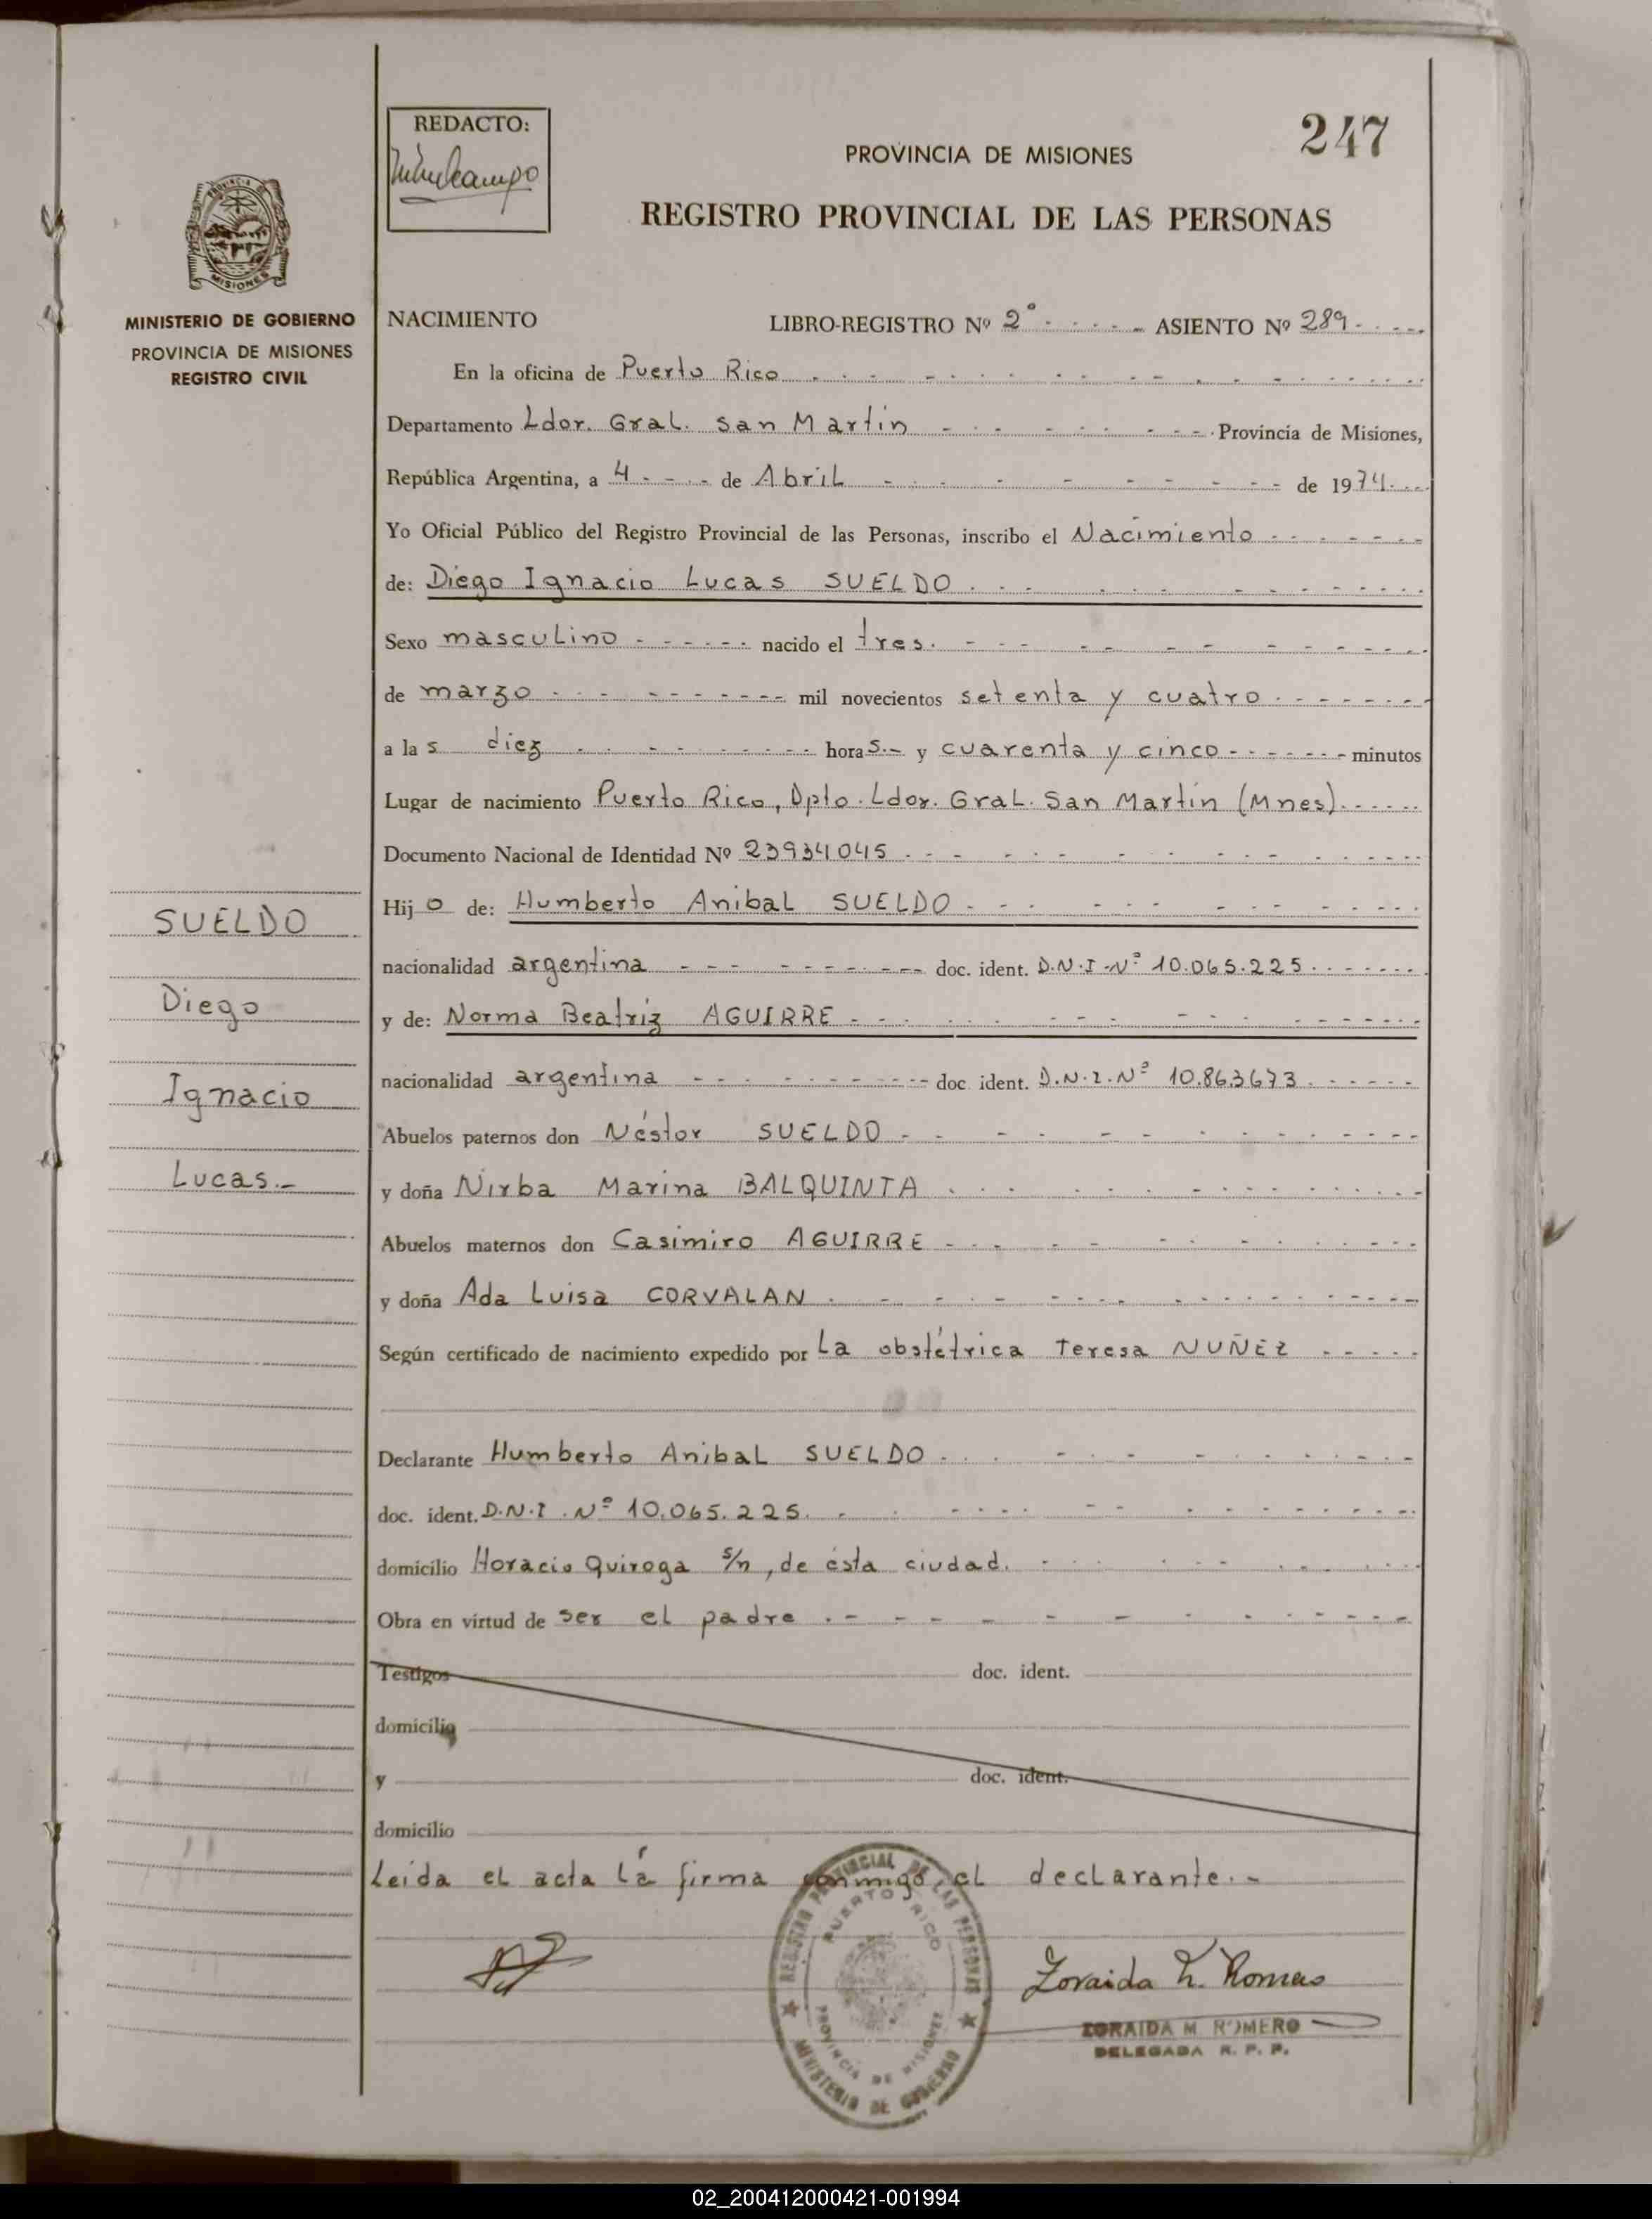 247
REDACTO:
PROVINCIA DE MISIONES
REGISTRO PROVINCIAL DE LAS PERSONAS
MISIONES
MINISTERIO DE GOBIERNO
PROVINCIA DE MISIONES
REGISTRO CIVIL
NACIMIENTO LIBRO-REGISTRO Nº 2º ASIENTO Nº 289
En la oficina de Puerto Rico
Departamento Ldor. Gral. San Martín Provincia de Misiones,
República Argentina, a 4 de Abril de 1974
Yo Oficial Público del Registro Provincial de las Personas, inscribo el Nacimiento
de: Diego Ignacio Lucas SUELDO
Sexo masculino nacido el tres
de marzo mil novecientos setenta y cuatro
a las diez horas.- y cuarenta y cinco minutos
Lugar de nacimiento Puerto Rico, Dpto. Ldor. Gral. San Martín (Mnes)
Documento Nacional de Identidad Nº 23934045
Hijo de: Humberto Anibal SUELDO
nacionalidad argentina doc. ident. D.N.I Nº 10.065.225
y de: Norma Beatriz AGUIRRE
nacionalidad argentina doc ident. D.N.I. Nº 10.863673
Abuelos paternos don Néstor SUELDO
y doña Nirba Marina BALQUINTA
Abuelos maternos don Casimiro AGUIRRE
y doña Ada Luisa CORVALAN
Según certificado de nacimiento expedido por La obstétrica Teresa NUÑEZ
Declarante Humberto Anibal SUELDO
doc. ident. D.N.I. Nº 10.065.225
domicilio Horacio Quiroga s/n, de ésta ciudad.
Obra en virtud de ser el padre
Testigos doc. ident.
domicilio
y doc. ident.
domicilio
Leida el acta la firma conmigo el declarante.-
SUELDO
Diego
Ignacio
Lucas.-
REGISTRO PROVINCIAL DE LAS PERSONAS
PUERTO RICO
PROVINCIA DE MISIONES
MINISTERIO DE GOBIERNO
Zoraida M. Romero
ZORAIDA M. ROMERO
DELEGADA R. P. P.
02_200412000421-001994